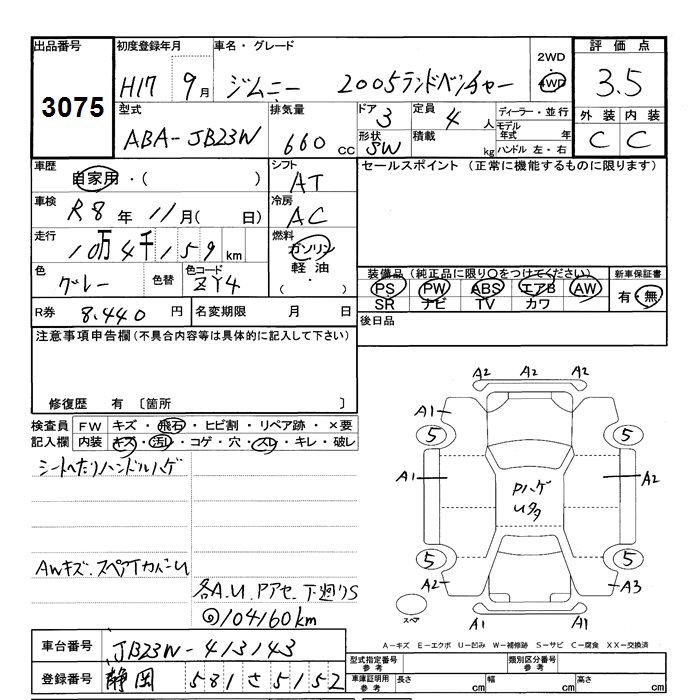 出品番号
3075
初度登録年月
H17 9月
車名・グレード
ジムニー 2005ランドベンチャー
2WD
4WD
評価点
3.5
型式
ABA-JB23W
排気量
660 CC
ドア
3
形状
SW
定員
4人
積載
kg
ディーラー・並行
モデル年式 年
ハンドル 左・右
外装 内装
C C
車歴
自家用・( )
シフト
AT
セールスポイント (正常に機能するものに限ります)
車検
R8年 11月( 日)
冷房
AC
走行
10万4千159km
燃料
ガソリン
軽油
( ・ )
色
グレー
色替
色コード
ZY4
装備品(純正品に限り○をつけてください)
PS PW ABS エアB AW
SR ナビ TV カワ
新車保証書
有・無
R券 8,440円
名変期限 月 日
後日品
注意事項申告欄(不具合内容等は具体的に記入して下さい)
修復歴 有 〔箇所
検査員記入欄
FW キズ・飛石・ヒビ割・リペア跡・×要
内装 キズ・汚レ・コゲ・穴・スレ・キレ・破レ
シートへたりハンドルハゲ
AWキズ.スペアTカバーU
各A.U.Pアセ.下廻りS
◎104160km
A2 A2 A2
A1 A2
5 5
A1 A2
Pハゲ
5 5
A2 A3
A1 A1
スペア
A-キズ E-エクボ U-凹み W-補修跡 S-サビ C-腐食 XX-交換済
車台番号 JB23W-413143
登録番号 静岡 581 さ 5152
型式指定番号 参考
類別区分番号 参考
車庫証明用 参考
長さ cm 幅 cm 高さ cm